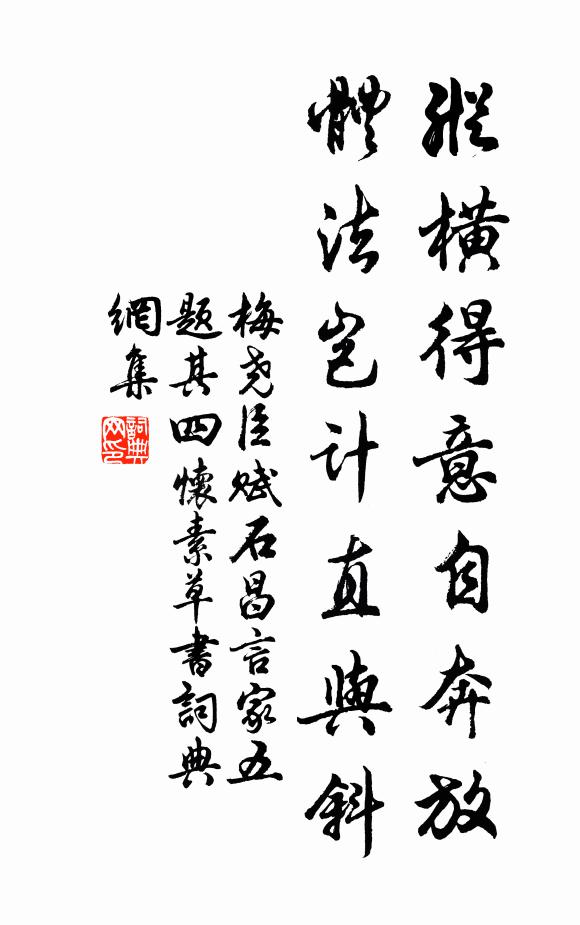 縱橫得意自奔放
體法豈计直與斜
梅尧臣赋石昌言家五
题其四懷素草書詞典
網集
詞典
网印